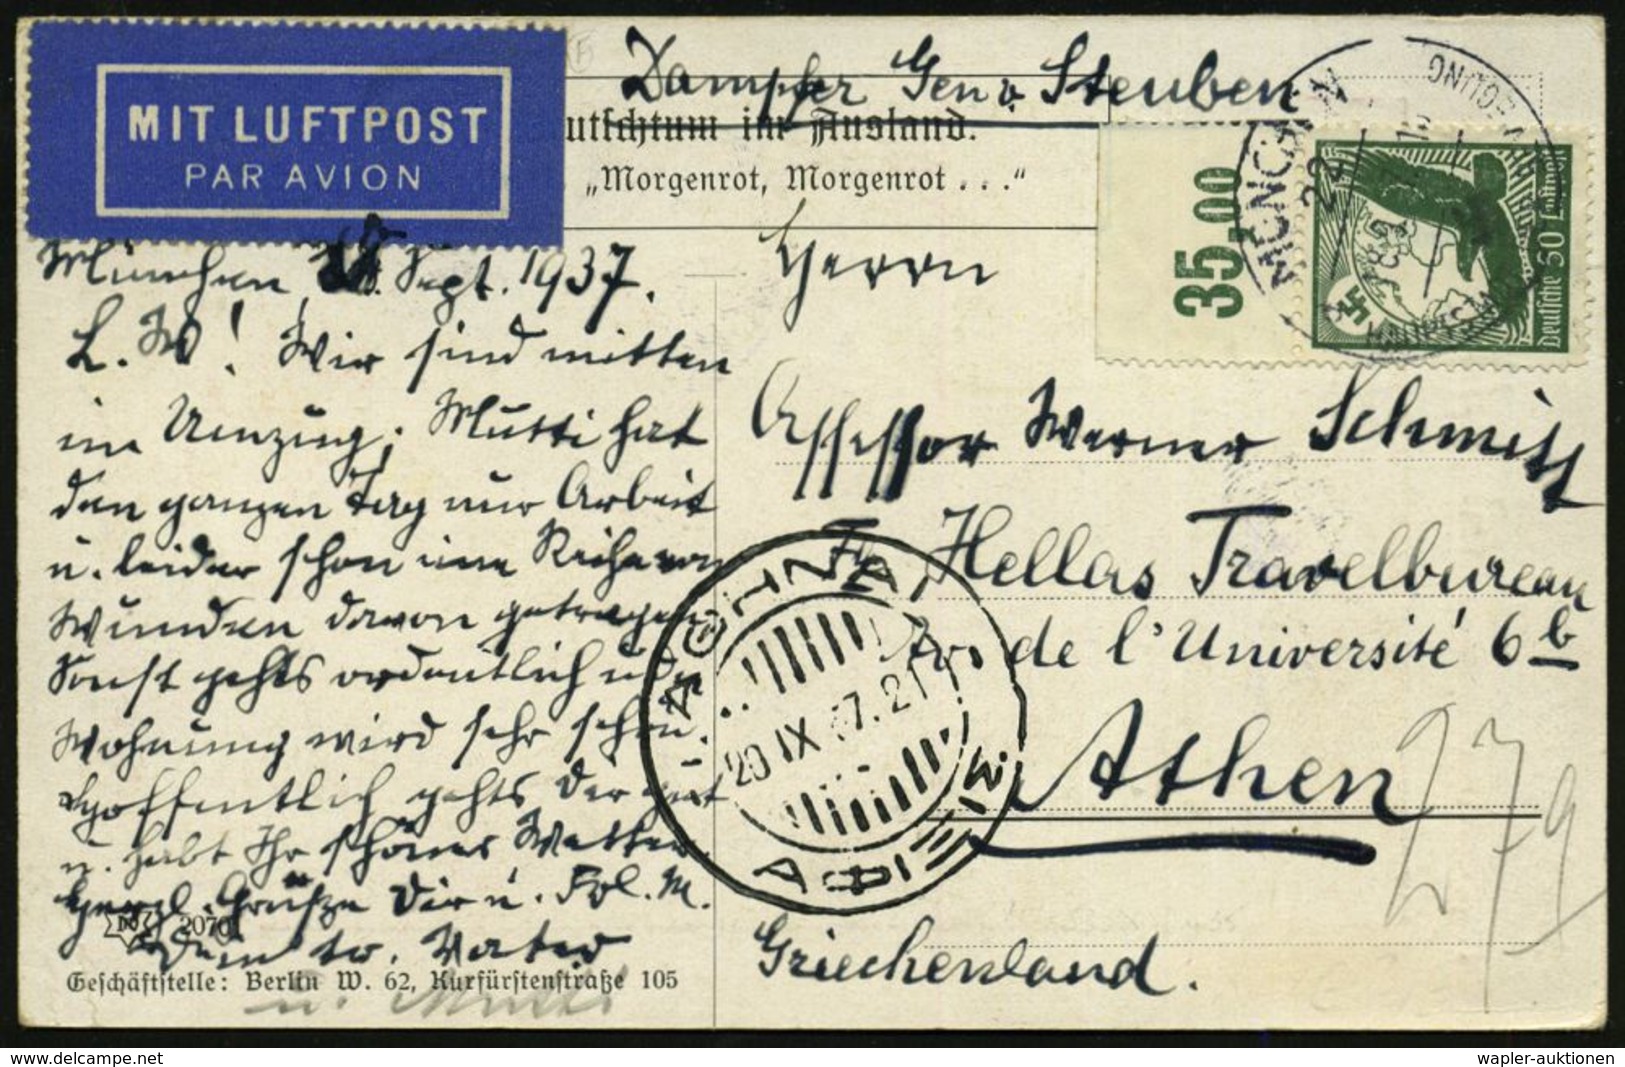 MIT LUFTPOST
PAR AVION
Dampfer Gen. v. Steuben
utschtum im Ausland.
„Morgenrot, Morgenrot . . .“
35,00
MÜNCHEN
Deutsche 50 Luftpost
München, Sept. 1937.
L. W! Wir sind mitten
im Umzug; Mutti hat
den ganzen Tag nur Arbeit
u. leider schon eine Reihe von
Wunden davon getragen
Sonst gehts ordentlich u. die
Wohnung wird sehr schön.
Hoffentlich gehts Dir gut
u. habt Ihr schönes Wetter.
Herzl. Grüße Dir u. Frl. M.
Dein tr. Vater
u. Mutti
2070
Geschäftstelle: Berlin W. 62, Kurfürstenstraße 105
Herrn
Assessor Werner Schmitt
Fa Hellas Travelbureau
Av. de l'Université 6b
Athen
Griechenland.
20 IX 37.21
279
delcampe.net
wapler-auktionen